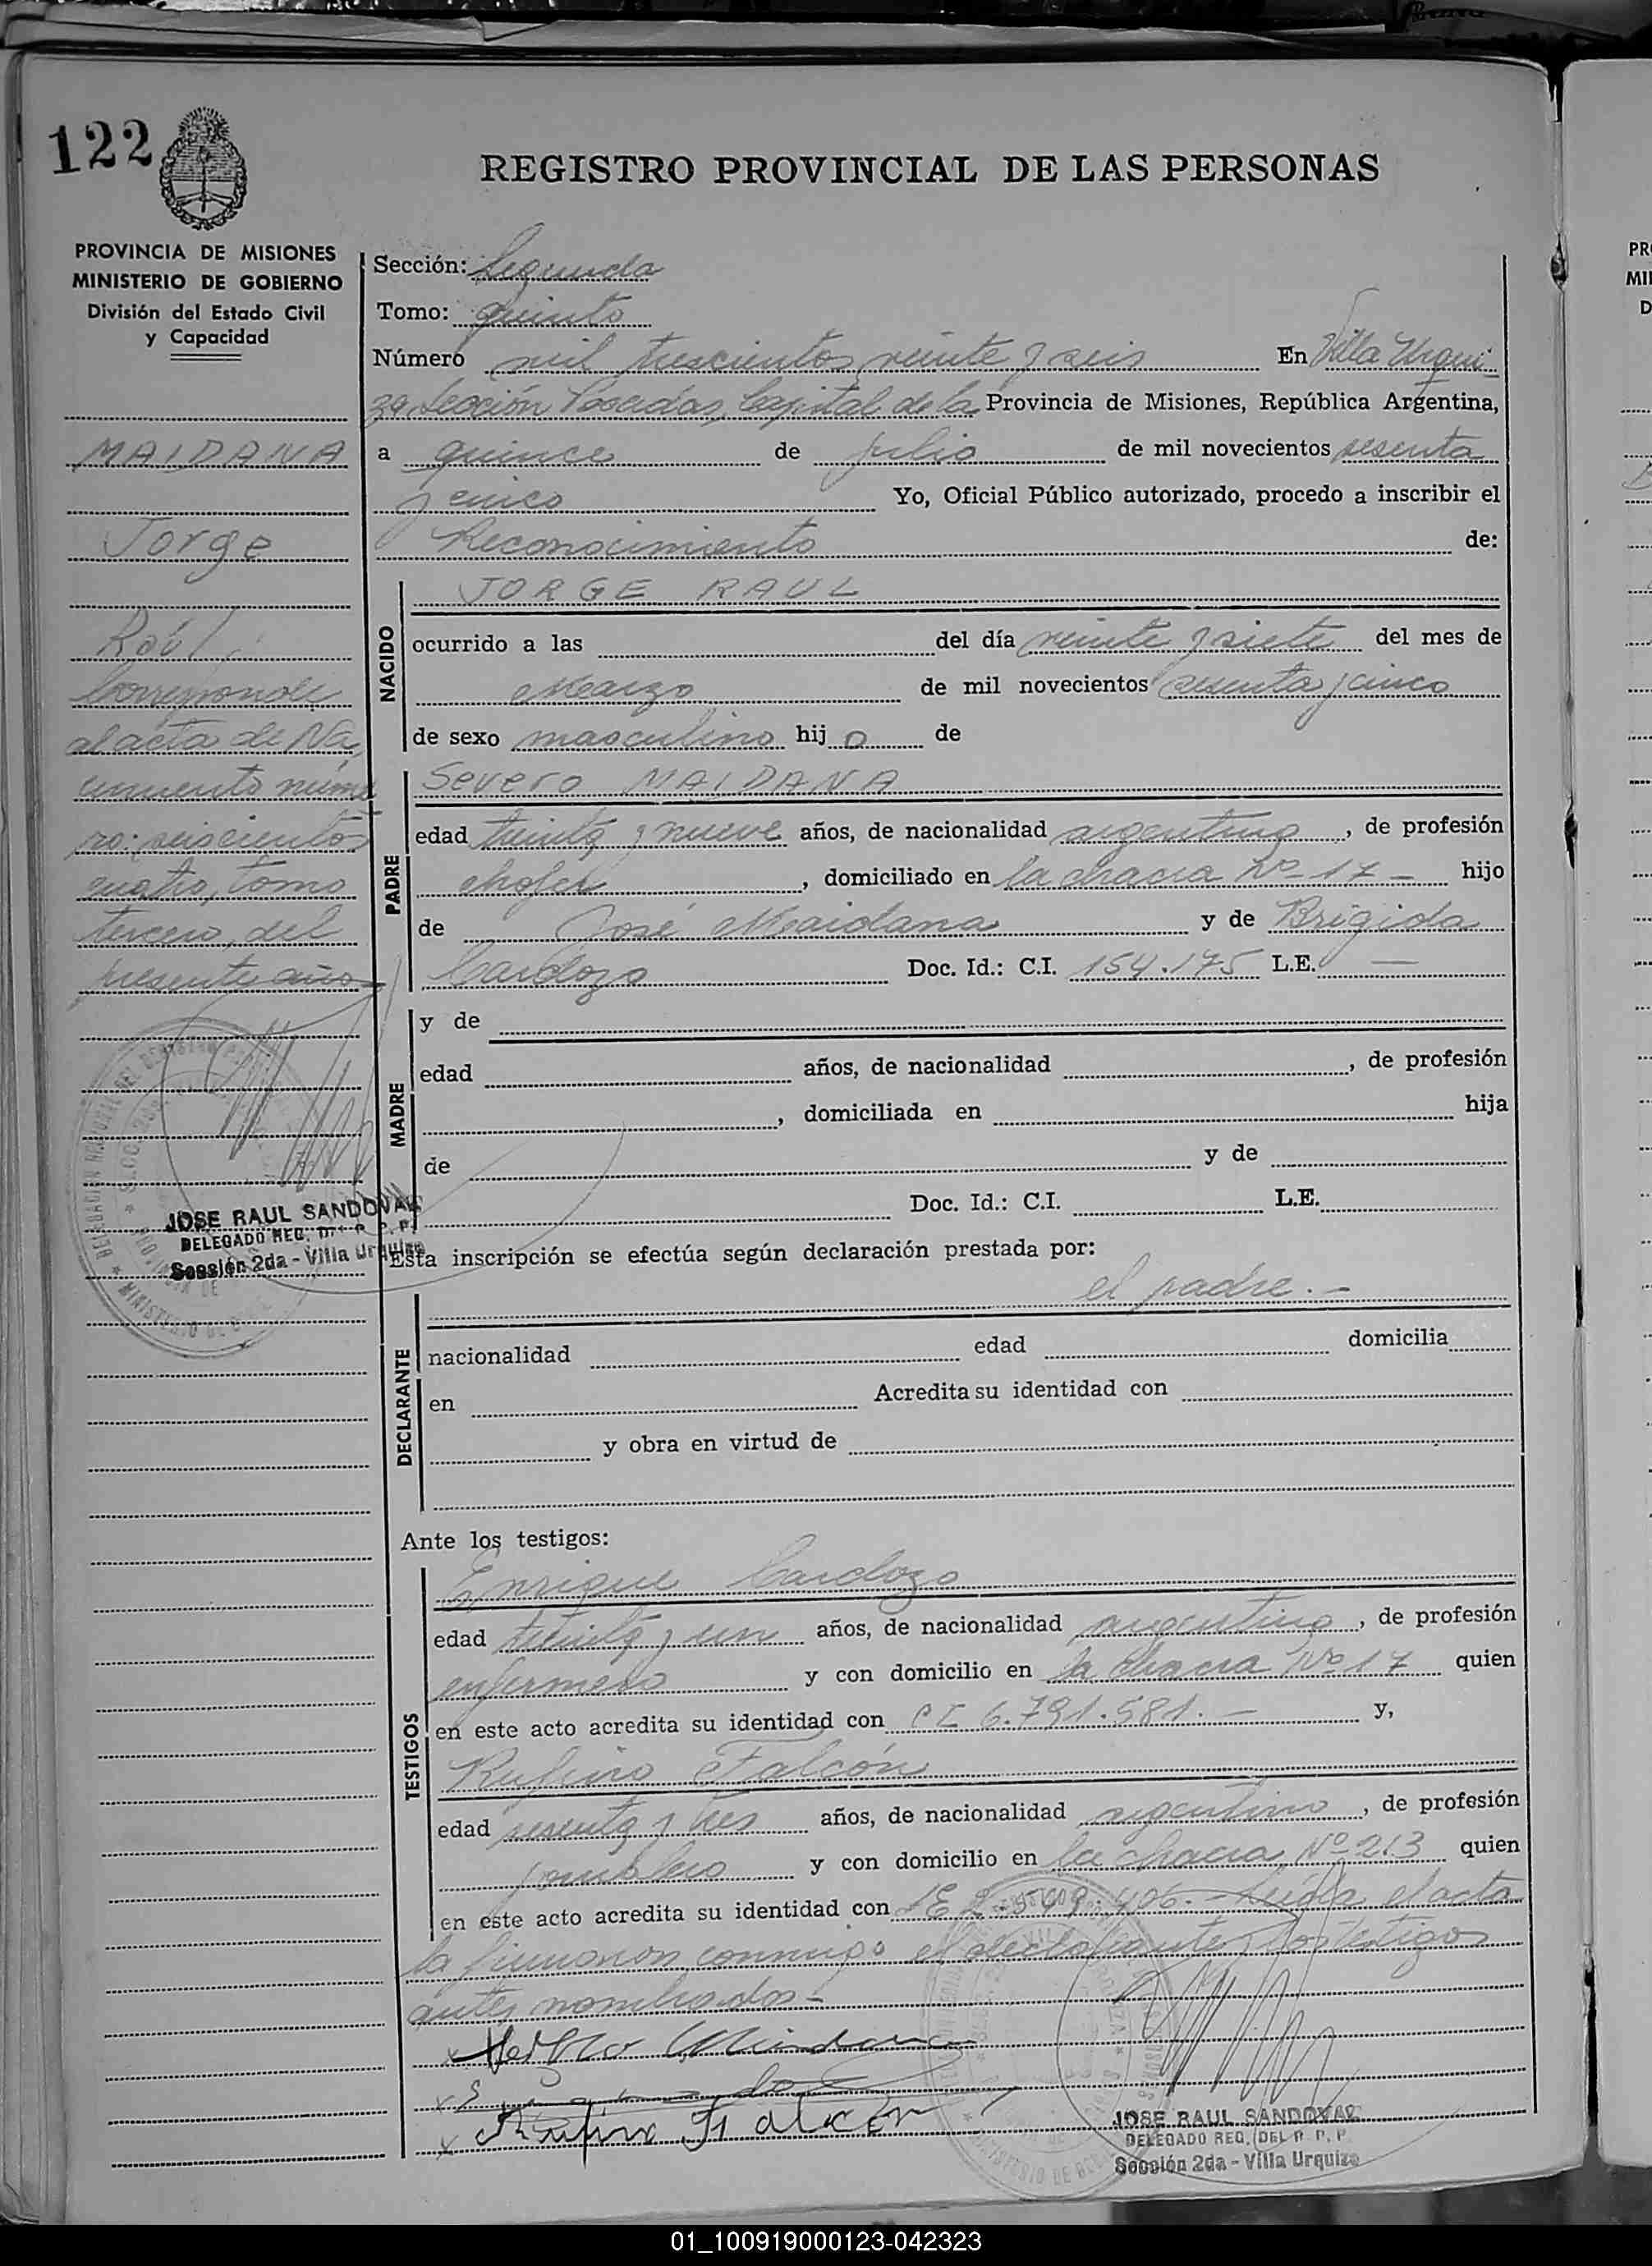 122
REGISTRO PROVINCIAL DE LAS PERSONAS
PROVINCIA DE MISIONES
MINISTERIO DE GOBIERNO
División del Estado Civil
y Capacidad
MAIDANA
Jorge
Raúl
Corresponde
al acta de Na
cimiento núme
ro: seiscientos
cuatro, tomo
tercero, del
presente año
JOSE RAUL SANDOVAL
DELEGADO REG. DEL R. P. P.
Sección 2da - Villa Urquiza
Sección: Segunda
Tomo: quinto
Número mil trescientos veinte y seis En Villa Urqui
za Sección Posadas, Capital de la Provincia de Misiones, República Argentina,
a quince de julio de mil novecientos sesenta
y cinco Yo, Oficial Público autorizado, procedo a inscribir el
Reconocimiento de:
NACIDO
JORGE RAUL
ocurrido a las del día veinte y siete del mes de
Marzo de mil novecientos sesenta y cinco
de sexo masculino hij o de
PADRE
Severo MAIDANA
edad treinta y nueve años, de nacionalidad argentina, de profesión
chofer, domiciliado en la chacra Nº 17 - hijo
de José Maidana y de Brigida
Cardozo Doc. Id.: C.I. 154.175 L.E. —
MADRE
y de
edad años, de nacionalidad , de profesión
, domiciliada en hija
de y de
Doc. Id.: C.I. L.E.
Esta inscripción se efectúa según declaración prestada por:
el padre. -
DECLARANTE
nacionalidad edad domicilia
en Acredita su identidad con
y obra en virtud de
Ante los testigos:
TESTIGOS
Enrique Cardozo
edad treinta y un años, de nacionalidad argentino, de profesión
enfermero y con domicilio en la chacra Nº 17 quien
en este acto acredita su identidad con CI 6.791.581. - y,
Rufino Falcón
edad sesenta y tres años, de nacionalidad argentino, de profesión
jornalero y con domicilio en la chacra Nº 213 quien
en este acto acredita su identidad con LE 2.549.406. - Leída el acta
la firmaron conmigo el declarante y los testigos
antes nombrados -
x Maidana
x
x Rufino Falcón
JOSE RAUL SANDOVAL
DELEGADO REG. DEL R. P. P.
Sección 2da - Villa Urquiza
01_100919000123-042323